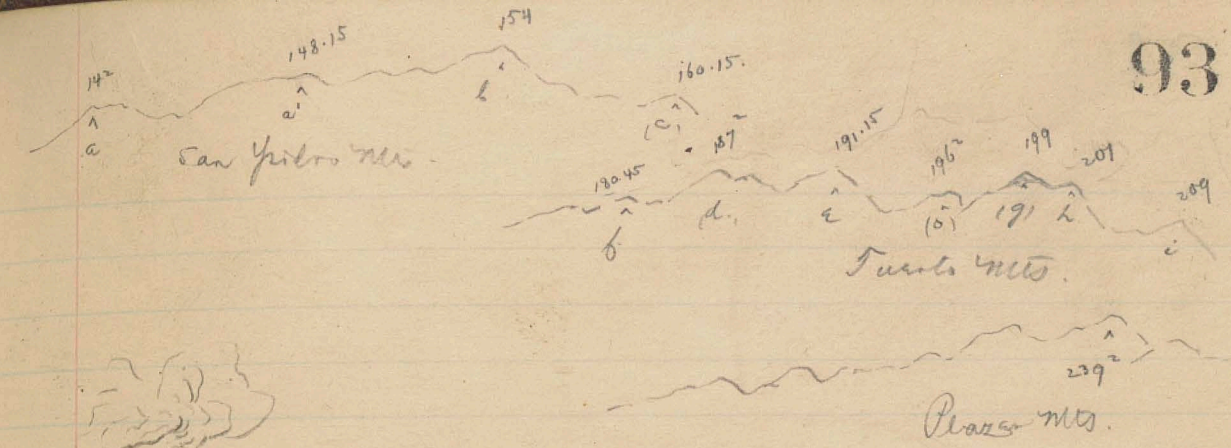 93
14² 148.15 154 160.15.
a a' b (c)
San Ysidro Mts.
180.45 187² 191.15 196² 199 201 209
f (d.) e (o) (g) h i
Tuerto Mts.
239²
Placer Mts.